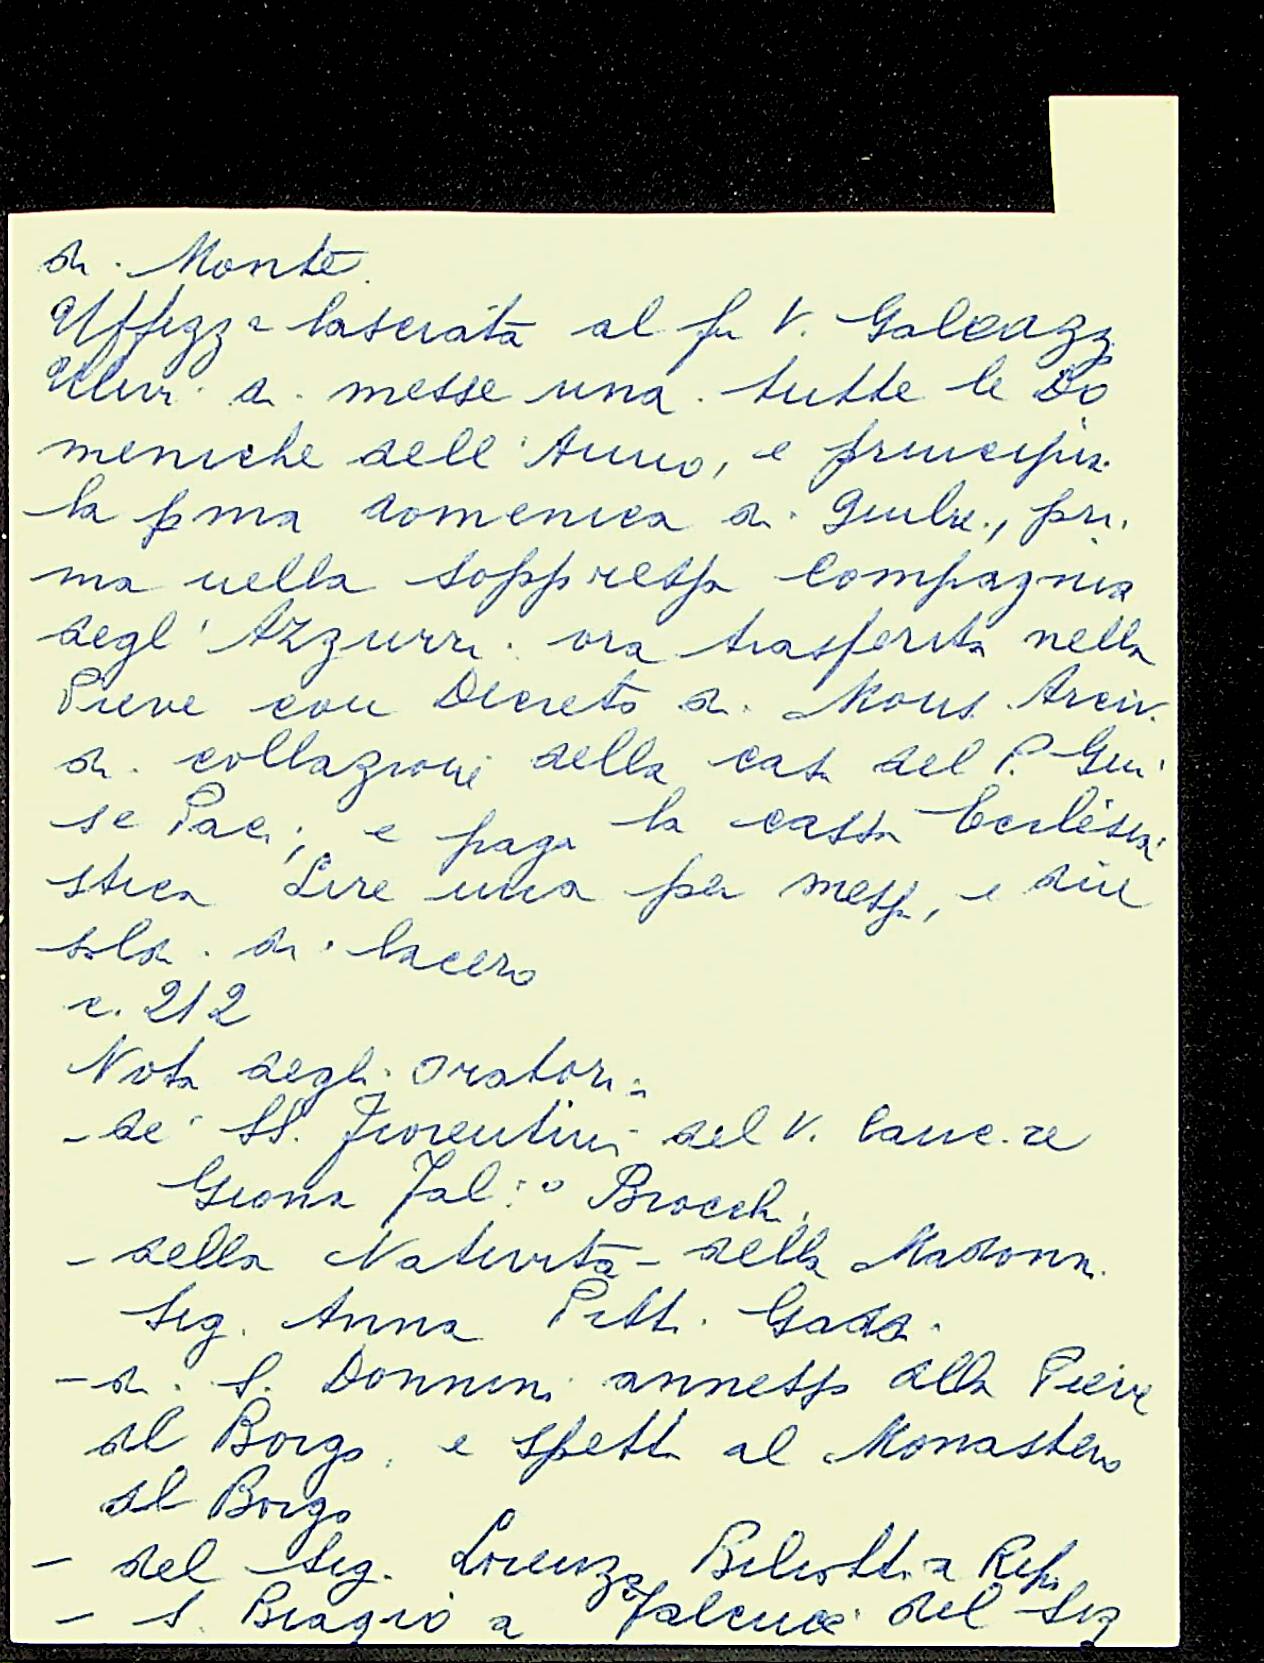 di Monte.
Uffizz a lasciata al fu V. Galeazz
Ulivi di messe una tutte le Do
meniche dell'Anno, e principia
la pma domenica di Giulio, pri.
ma nella soppressa Compagnia
degl'Azzurri ora trasferita nella
Pieve con Decreto di Mons. Arciv.
di collazione della casa del P.
se Paci; e paga la cassa Ecclesia
stica Lire una per messa, e due
soldi di lacero
c. 212
Nota degli Oratori
- de' SS. Fiorentini del V. Canc.re
Giona Brocchi
- della Natività - della Madonna
Sig. Anna Pitti Gaddi
- di S. Donnino annesso alla Pieve
al Borgo, e spetta al Monastero
al Borgo
- del Sig. Lorenzo Biliotti a
- S. Biagio a del Sig